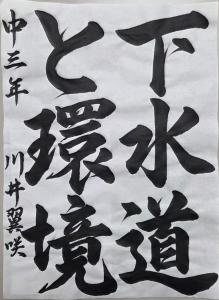 下水道
と環境
中三年 川井翼咲